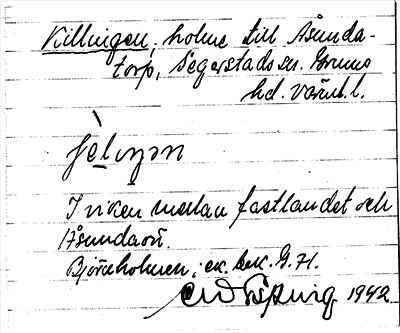 Killingen, holme till Åsunda-
torp, Segerstads sn. Grums
hd. Värml.l.
I viken mellan fastlandet och
Åsundaön.
Björkholmen; ek. bek. G.H.
1942